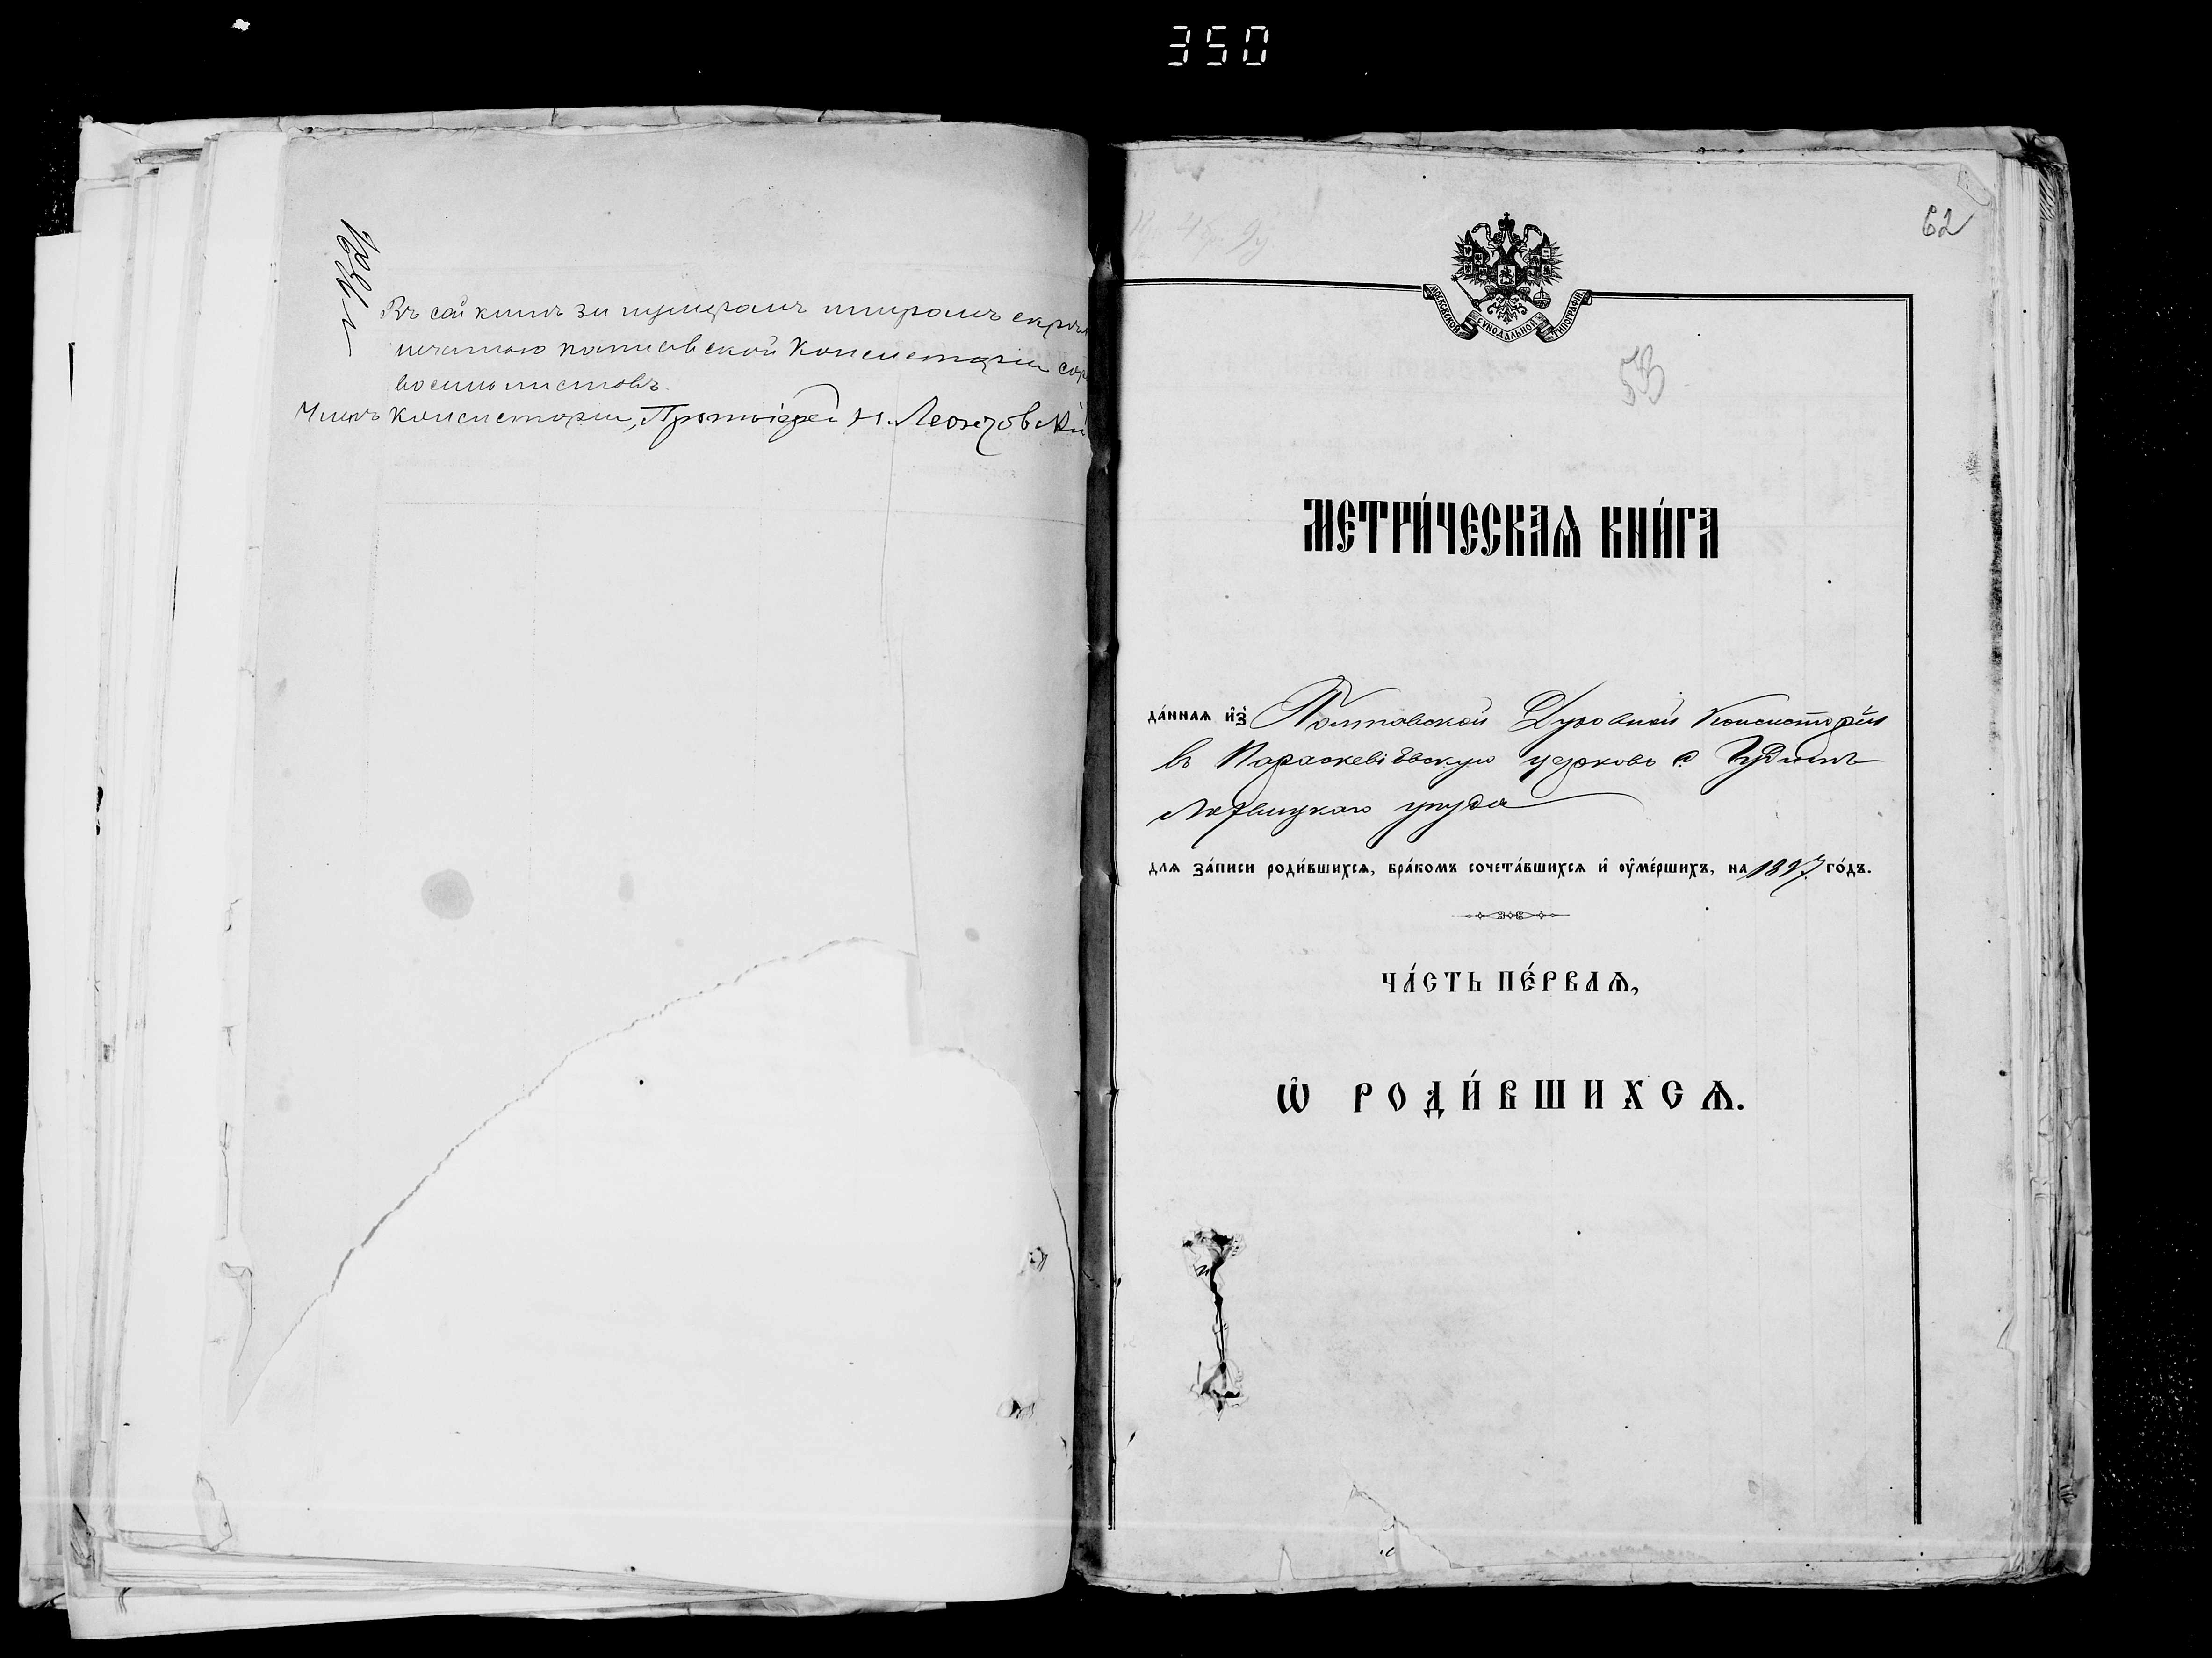 350
№ 1321
Въ сей книгѣ за нумерами шнуромъ скрѣп
печатью Полтавской Консисторіи сор
восемь листовъ.
Членъ Консисторіи, Протоіерей Н.
62
МОСКОВСКОЙ СѴНОДАЛЬНОЙ ТИПОГРАФІИ
53
МЕТРИ́ЧЕСКАѦ КНИ́ГА
да́ннаѧ и҆з̾ Полтавской Духовной Консисторіи
въ Параскевіевскую церковь с.
Лохвицкаго уѣзда
длѧ за́писи роди́вшихсѧ, бра́комъ сочета́вшихсѧ и҆ ᲂу҆ме́ршихъ, на 1897 го́дъ.
ЧА́СТЬ ПЕ́РВАѦ,
Ѡ҆ РОДИ́ВШИХСѦ.